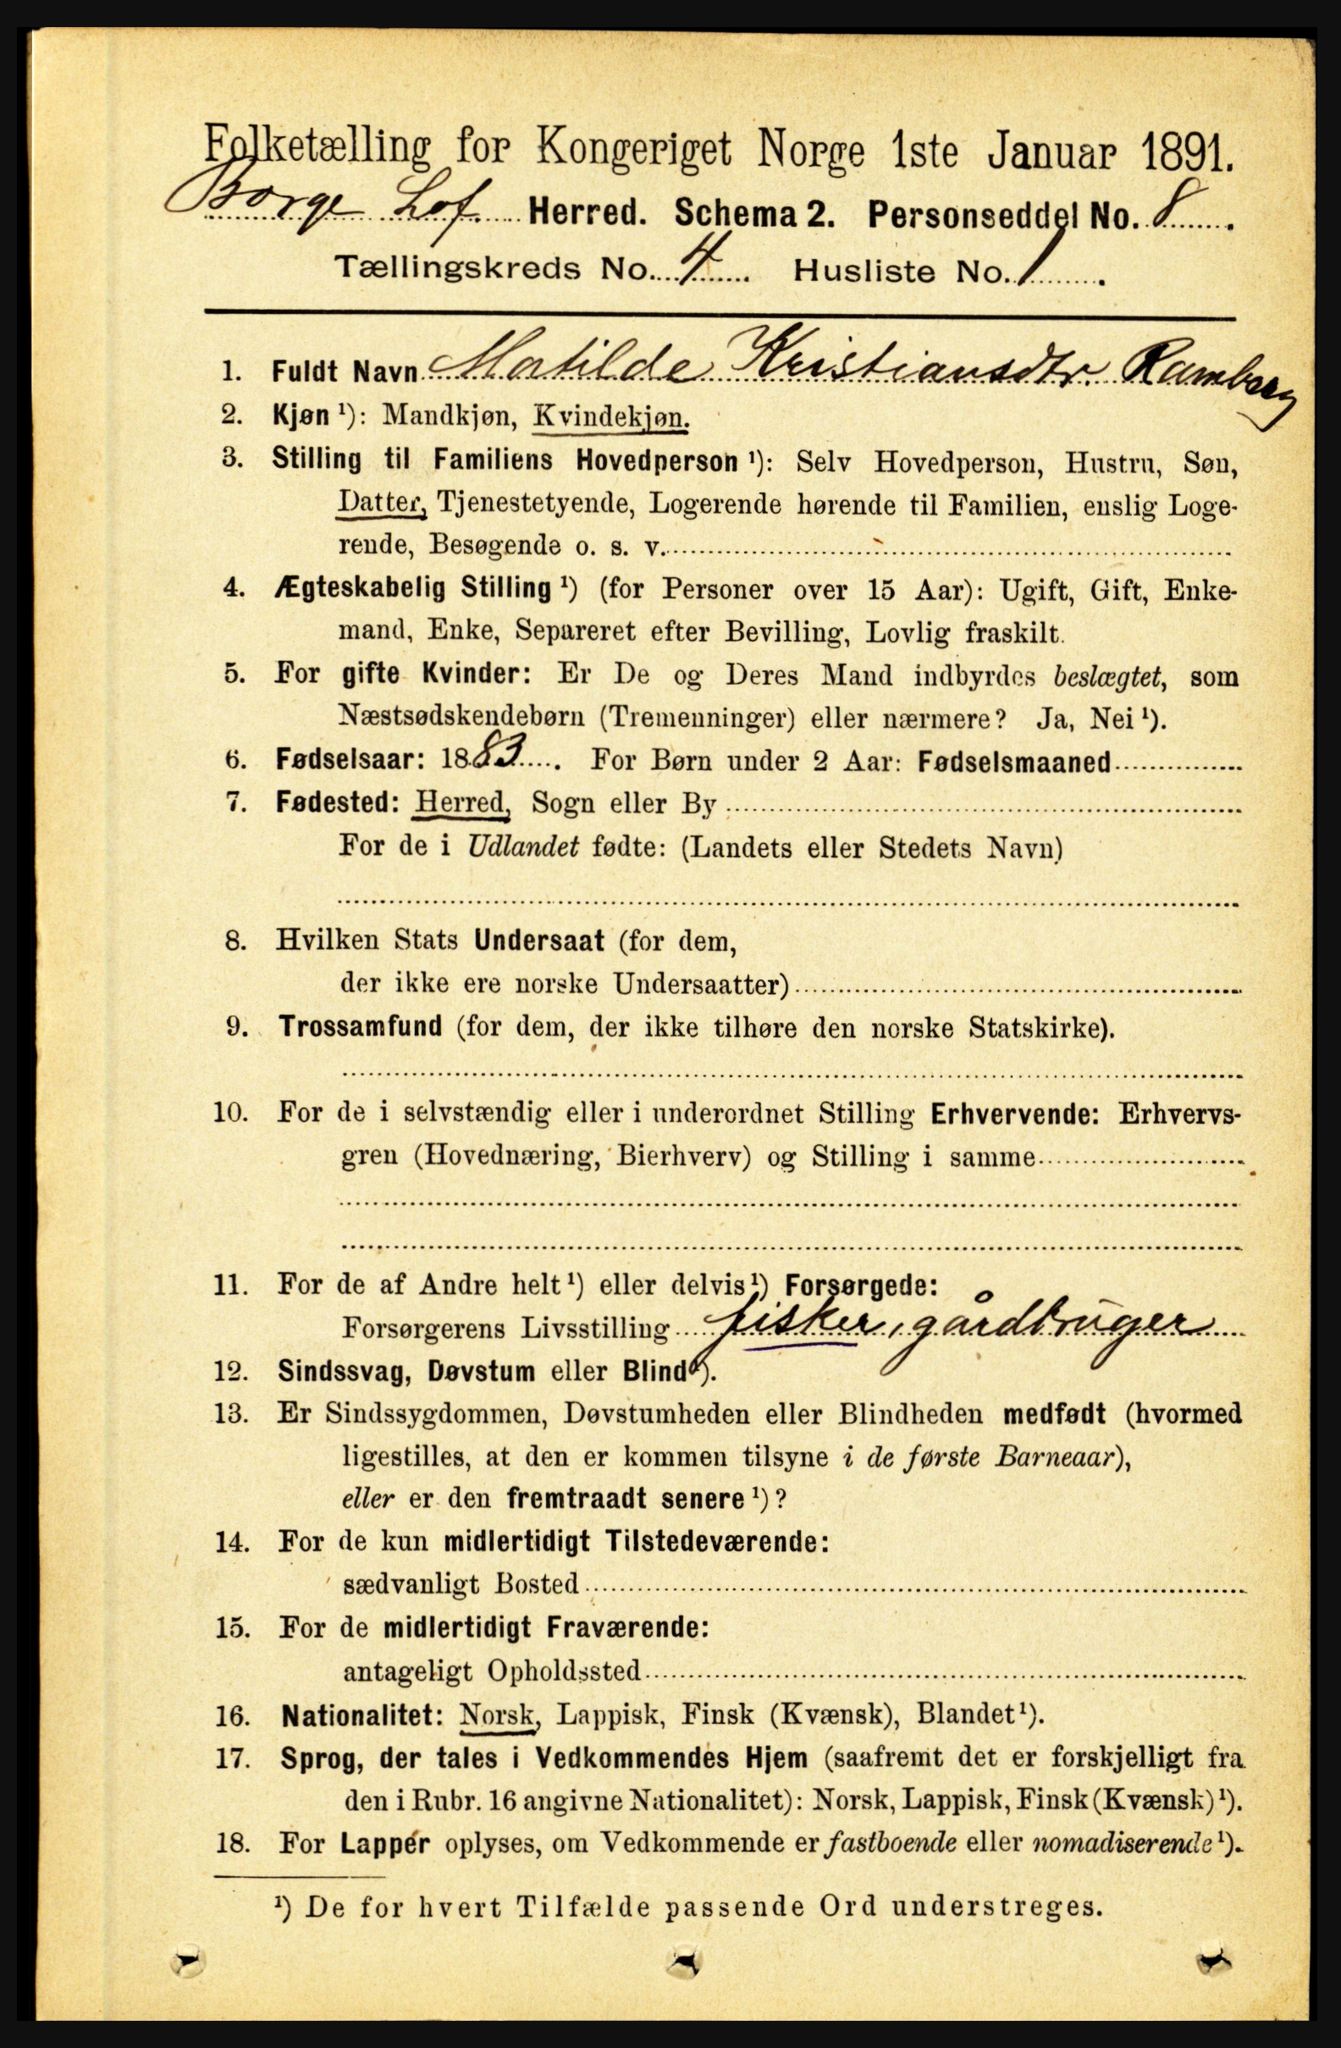 Folketælling for Kongeriget Norge 1ste Januar 1891.
Borge Lof. Herred. Schema 2. Personseddel No. 8
Tællingskreds No. 4 Husliste No. 1
1. Fuldt Navn Matilde Kristiansdtr. Ramberg
2. Kjøn ¹): Mandkjøn, Kvindekjøn.
3. Stilling til Familiens Hovedperson ¹): Selv Hovedperson, Hustru, Søn,
Datter, Tjenestetyende, Logerende hørende til Familien, enslig Loge-
rende, Besøgende o. s. v.
4. Ægteskabelig Stilling ¹) (for Personer over 15 Aar): Ugift, Gift, Enke-
mand, Enke, Separeret efter Bevilling, Lovlig fraskilt.
5. For gifte Kvinder: Er De og Deres Mand indbyrdes beslægtet, som
Næstsødskendebørn (Tremenninger) eller nærmere? Ja, Nei ¹).
6. Fødselsaar: 1883. For Børn under 2 Aar: Fødselsmaaned
7. Fødested: Herred, Sogn eller By
For de i Udlandet fødte: (Landets eller Stedets Navn)
8. Hvilken Stats Undersaat (for dem,
der ikke ere norske Undersaatter)
9. Trossamfund (for dem, der ikke tilhøre den norske Statskirke).
10. For de i selvstændig eller i underordnet Stilling Erhvervende: Erhvervs-
gren (Hovednæring, Bierhverv) og Stilling i samme
11. For de af Andre helt ¹) eller delvis ¹) Forsørgede:
Forsørgerens Livsstilling fisker, gårdbruger
12. Sindssvag, Døvstum eller Blind ¹).
13. Er Sindssygdommen, Døvstumheden eller Blindheden medfødt (hvormed
ligestilles, at den er kommen tilsyne i de første Barneaar),
eller er den fremtraadt senere ¹)?
14. For de kun midlertidigt Tilstedeværende:
sædvanligt Bosted
15. For de midlertidigt Fraværende:
antageligt Opholdssted
16. Nationalitet: Norsk, Lappisk, Finsk (Kvænsk), Blandet ¹).
17. Sprog, der tales i Vedkommendes Hjem (saafremt det er forskjelligt fra
den i Rubr. 16 angivne Nationalitet): Norsk, Lappisk, Finsk (Kvænsk) ¹).
18. For Lapper oplyses, om Vedkommende er fastboende eller nomadiserende ¹).
¹) De for hvert Tilfælde passende Ord understreges.